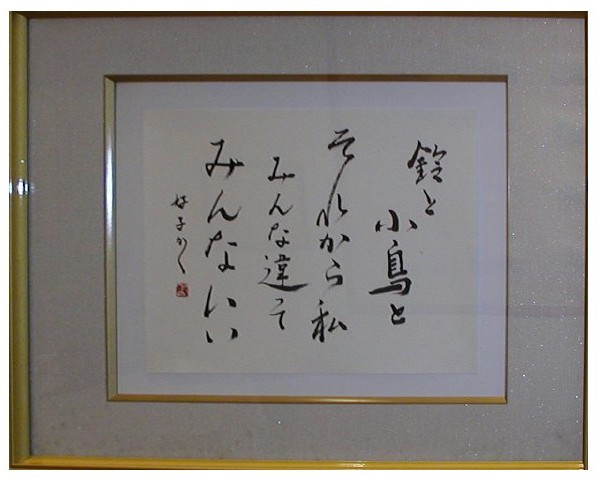 鈴と
小鳥と
それから私
みんな違て
みんないい
好子かく